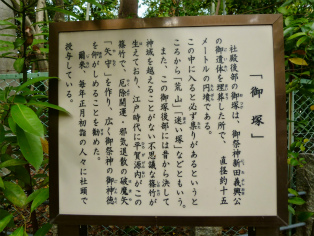 「御塚」
社殿後部の御塚は、御祭神新田義興公
の御遺体を埋葬した所で、直径約十五
メートルの円墳である。
この中に入ると必ず祟りがあるという
ころから「荒山」「迷い塚」などともいう。
また、この御塚後部には昔から決して
神域を越えることがない不思議な篠竹が
生えており、江戸時代に平賀源内がこの
篠竹で、厄除開運・邪気退散の破魔矢
「矢守」を作り、広く御祭神の御神徳
を何がしめることを勧めた。
爾来、毎年正月初詣の人々に社頭で
授与している。